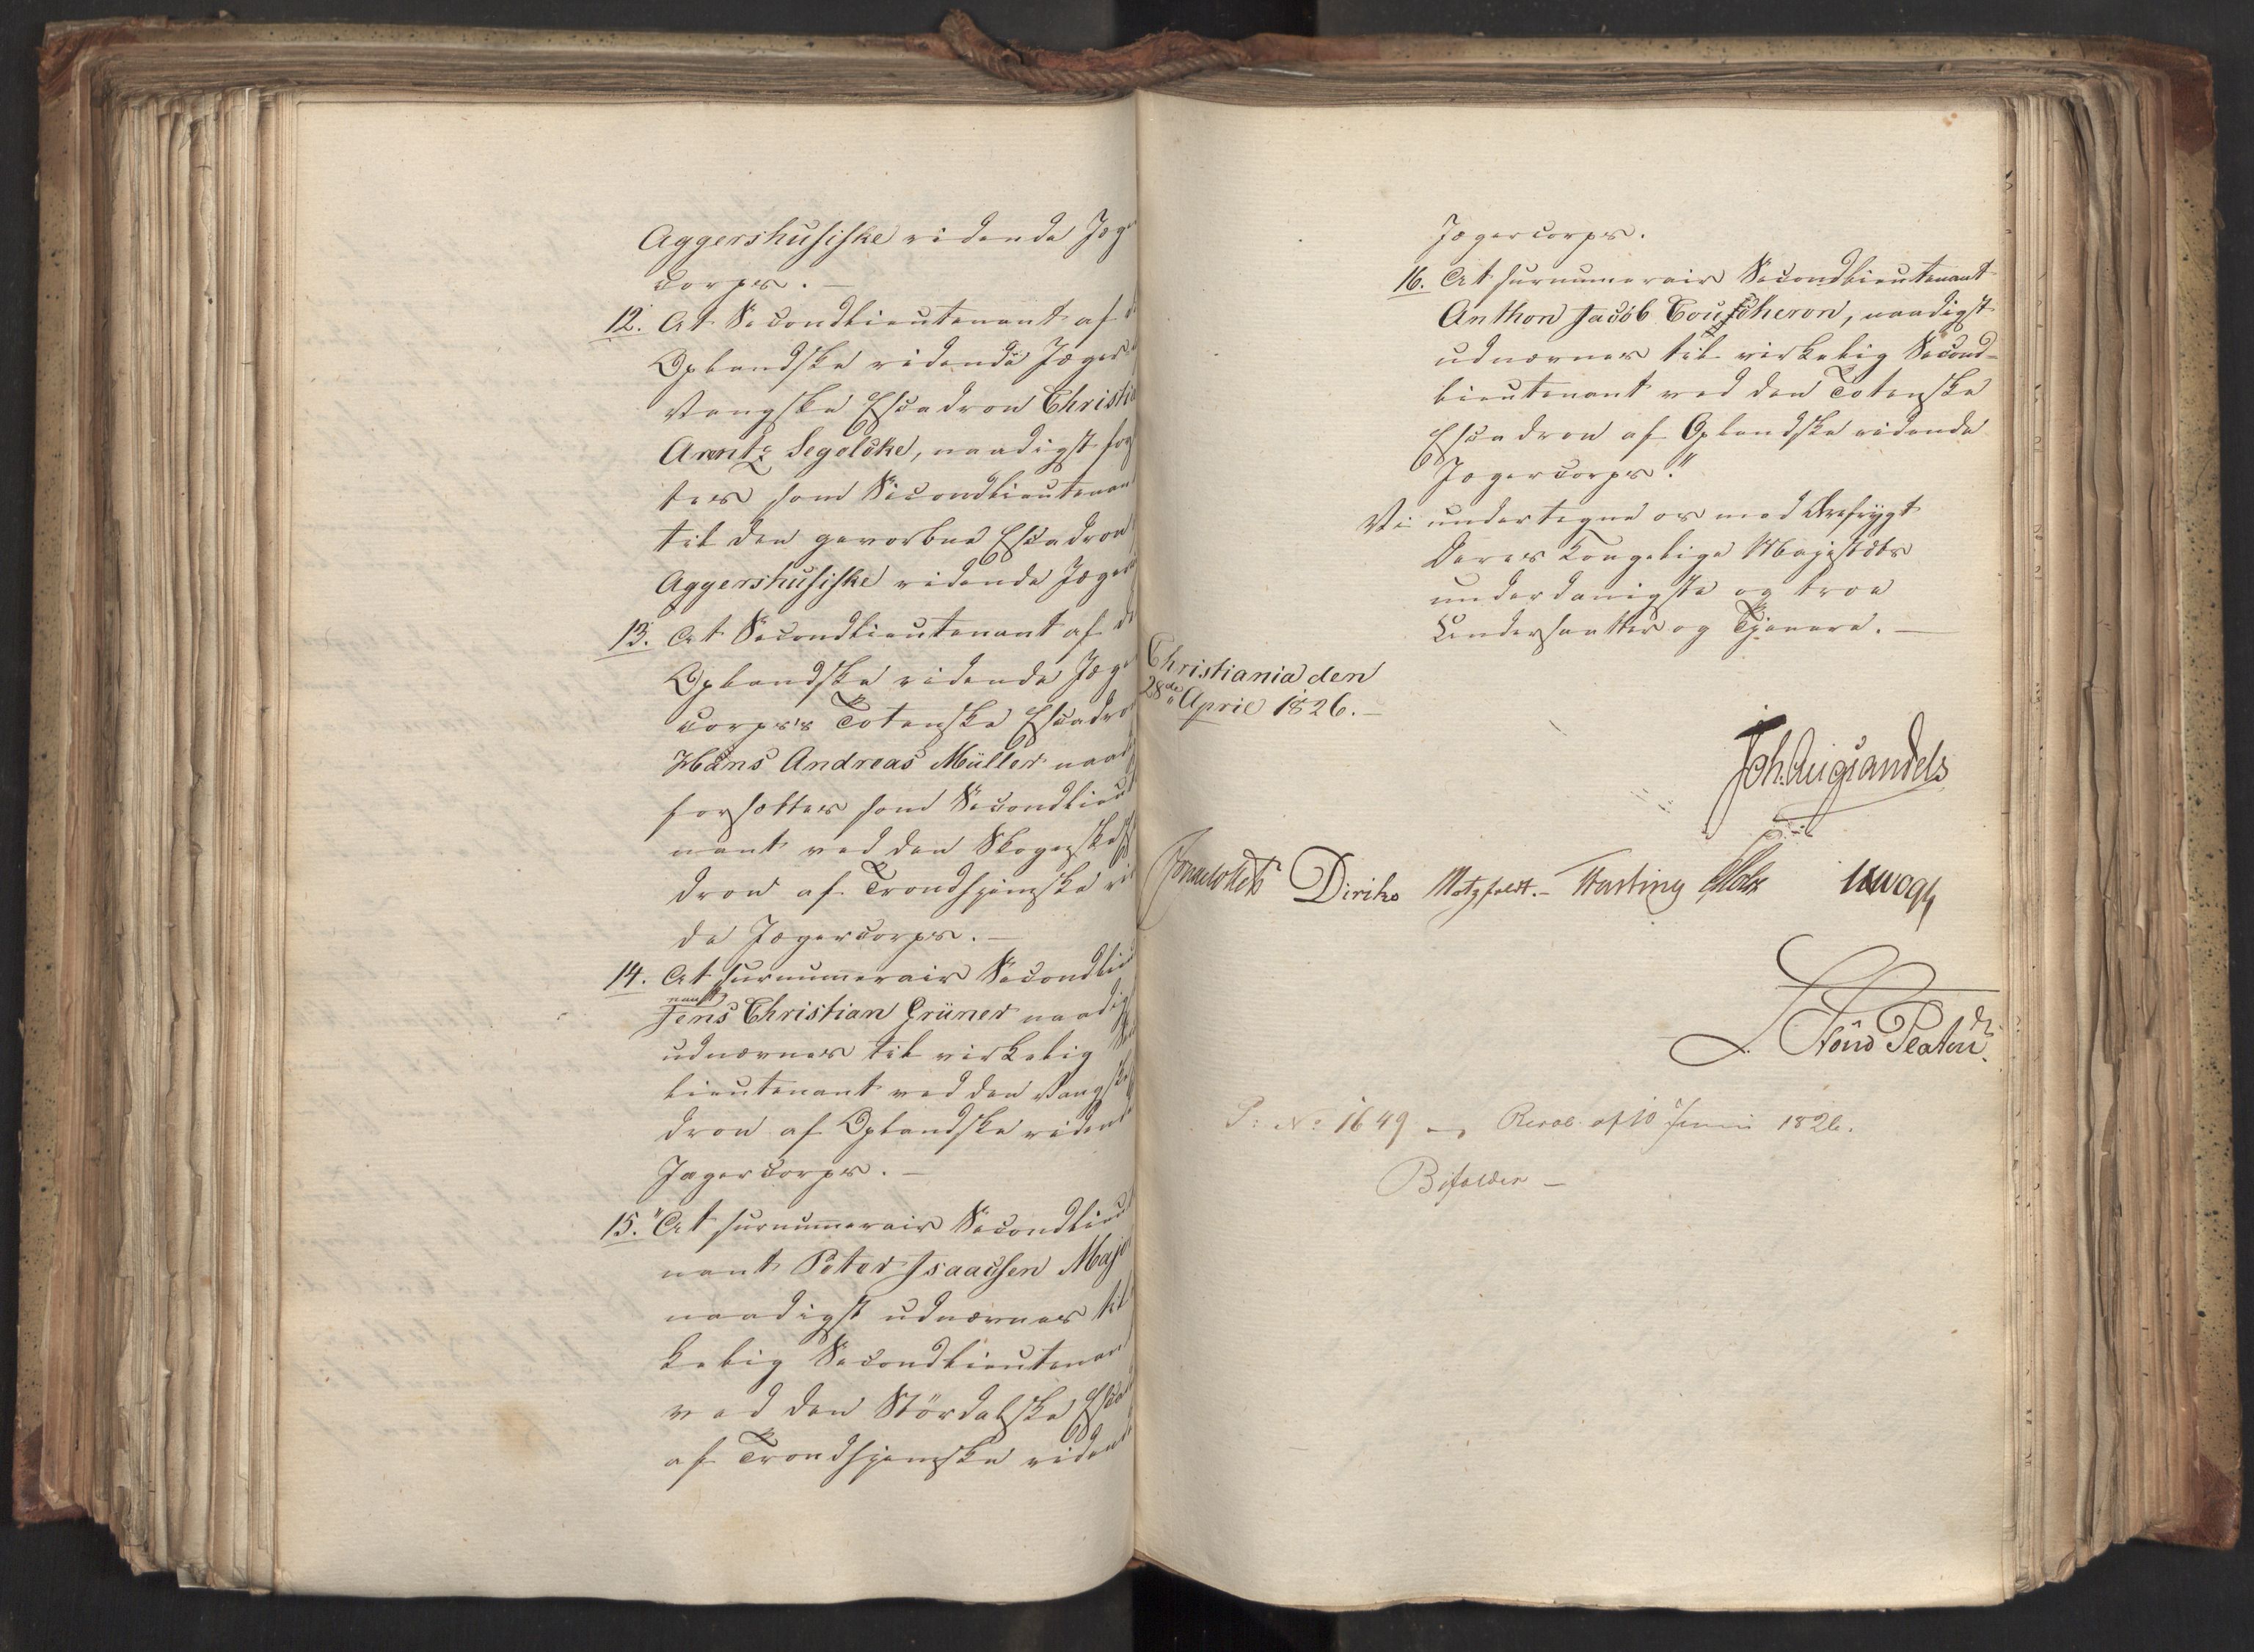 Aggershusiske ridende Jæge
corps. —
12. At Secondlieutenant af d
Oplandske ridende Jæger
Vangske Escadron Christia
Arentz Segelcke, naadigst for
ttes som Secondlieutenan
til den gevorbne Escadron
Aggershusiske ridende Jæger
13. At Secondlieutenant af de
Oplandske ridende Jæge
corps's Totenske Escadro
Hans Andreas Müller naad
forsættes som Secondlieut
nant ved den Skognske Es
dron af Trondhjemske rid
de Jægercorps. —
14. At surnumerair Secondlieu
nant
Jens Christian Grüner naadig
udnævnes til virkelig Sec
lieutenant ved den Vangske
dron af Oplandske ridend
Jægercorps. —
15. "At surnumerair Secondlieut
nant Peter Isaachsen Majo
naadigst udnævnes til
kelig Secondlieutenan
ved den Størdalske Escad
af Trondhjemske ridend
Jægercorps.
16. At surnumerair Secondlieutenant
Anthon Jacob Coucheron, naadigst
udnævnes til virkelig Second-
lieutenant ved den Totenske
Escadron af Oplandske ridende
Jægercorps."
Vi undertegne os med Ærefrygt
Deres Kongelige Majestæts
underdanigste og troe
Undersaatter og Tjenere. —
Christiania den
28de April 1826. —
Joh. Aug. Sandels
Jonas Collett Diriks Motzfeldt. — Fasting Holst Krogh
L. Stoud Platou
P: No 1649 — Resol. af 10 Juni 1826.
Bifalden —